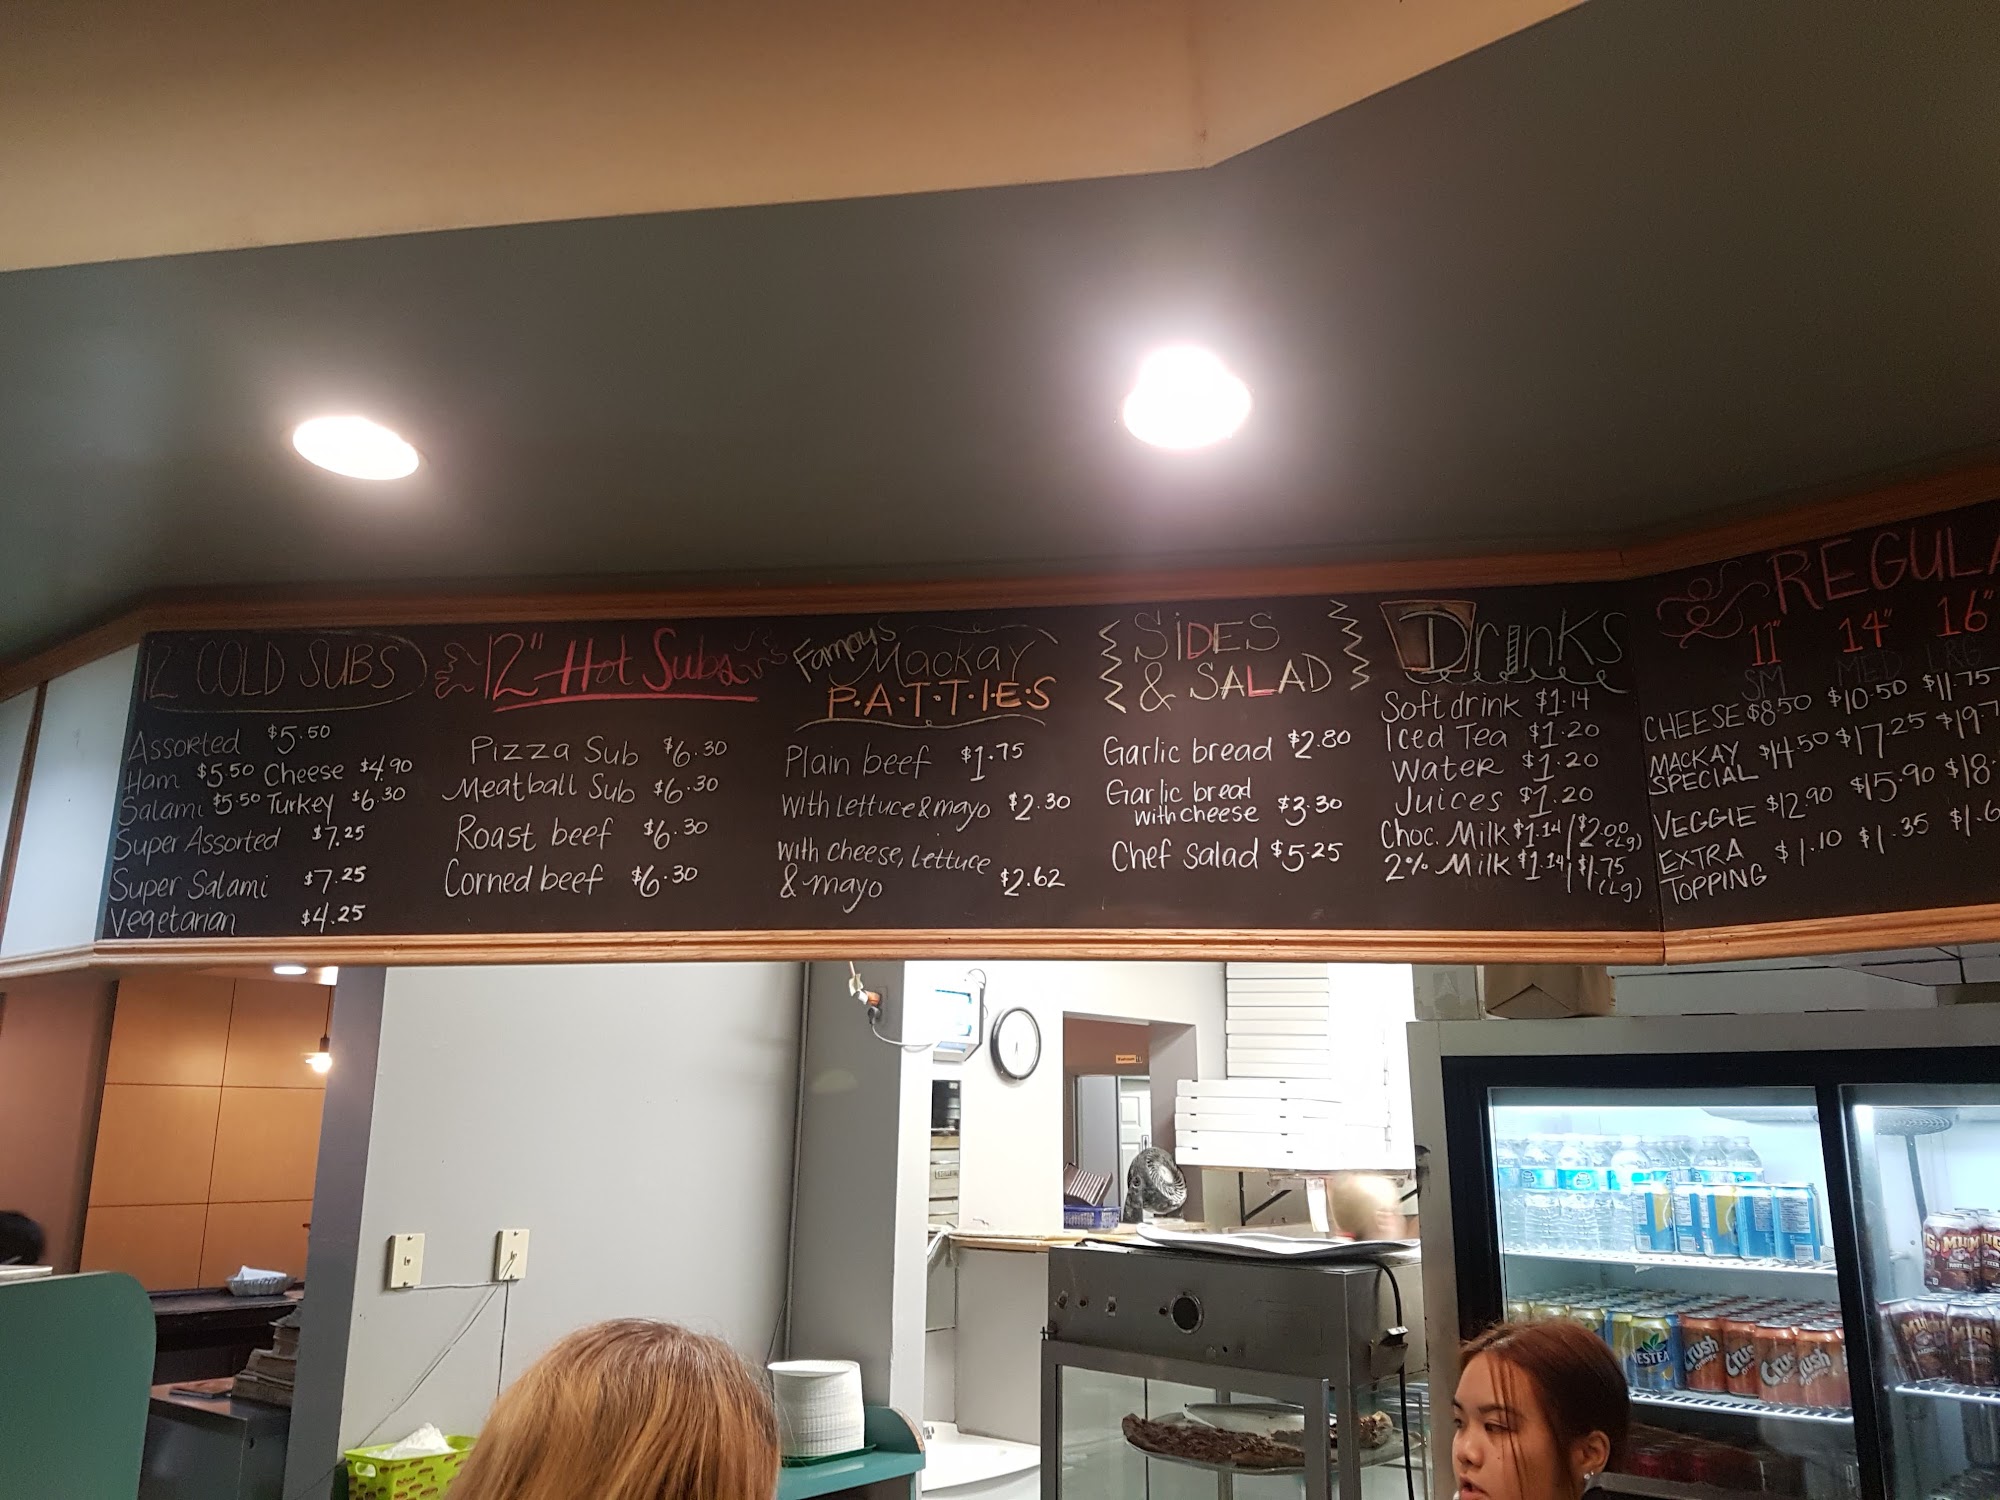 12" COLD SUBS
Assorted $5.50
Ham $5.50 Cheese $4.90
Salami $5.50 Turkey $6.30
Super Assorted $7.25
Super Salami $7.25
Vegetarian $4.25
12" Hot Subs
Pizza Sub $6.30
Meatball Sub $6.30
Roast beef $6.30
Corned beef $6.30
Famous
Mackay
P·A·T·T·I·E·S
Plain beef $1.75
With lettuce & mayo $2.30
With cheese, lettuce
& mayo $2.62
SIDES
& SALAD
Garlic bread $2.80
Garlic bread
with cheese $3.30
Chef Salad $5.25
Drinks
Soft drink $1.14
Iced Tea $1.20
Water $1.20
Juices $1.20
Choc. Milk $1.14/$2.00 (Lg)
2% Milk $1.14/$1.75
(Lg)
REGULA
11" 14" 16"
SM MED LRG
CHEESE $8.50 $10.50 $11.75
MACKAY
SPECIAL $14.50 $17.25 $19.7
VEGGIE $12.90 $15.90 $18.
EXTRA
TOPPING $1.10 $1.35 $1.6
NESTEA
Crush
Crush
Crush
MUG
MUG
MUG